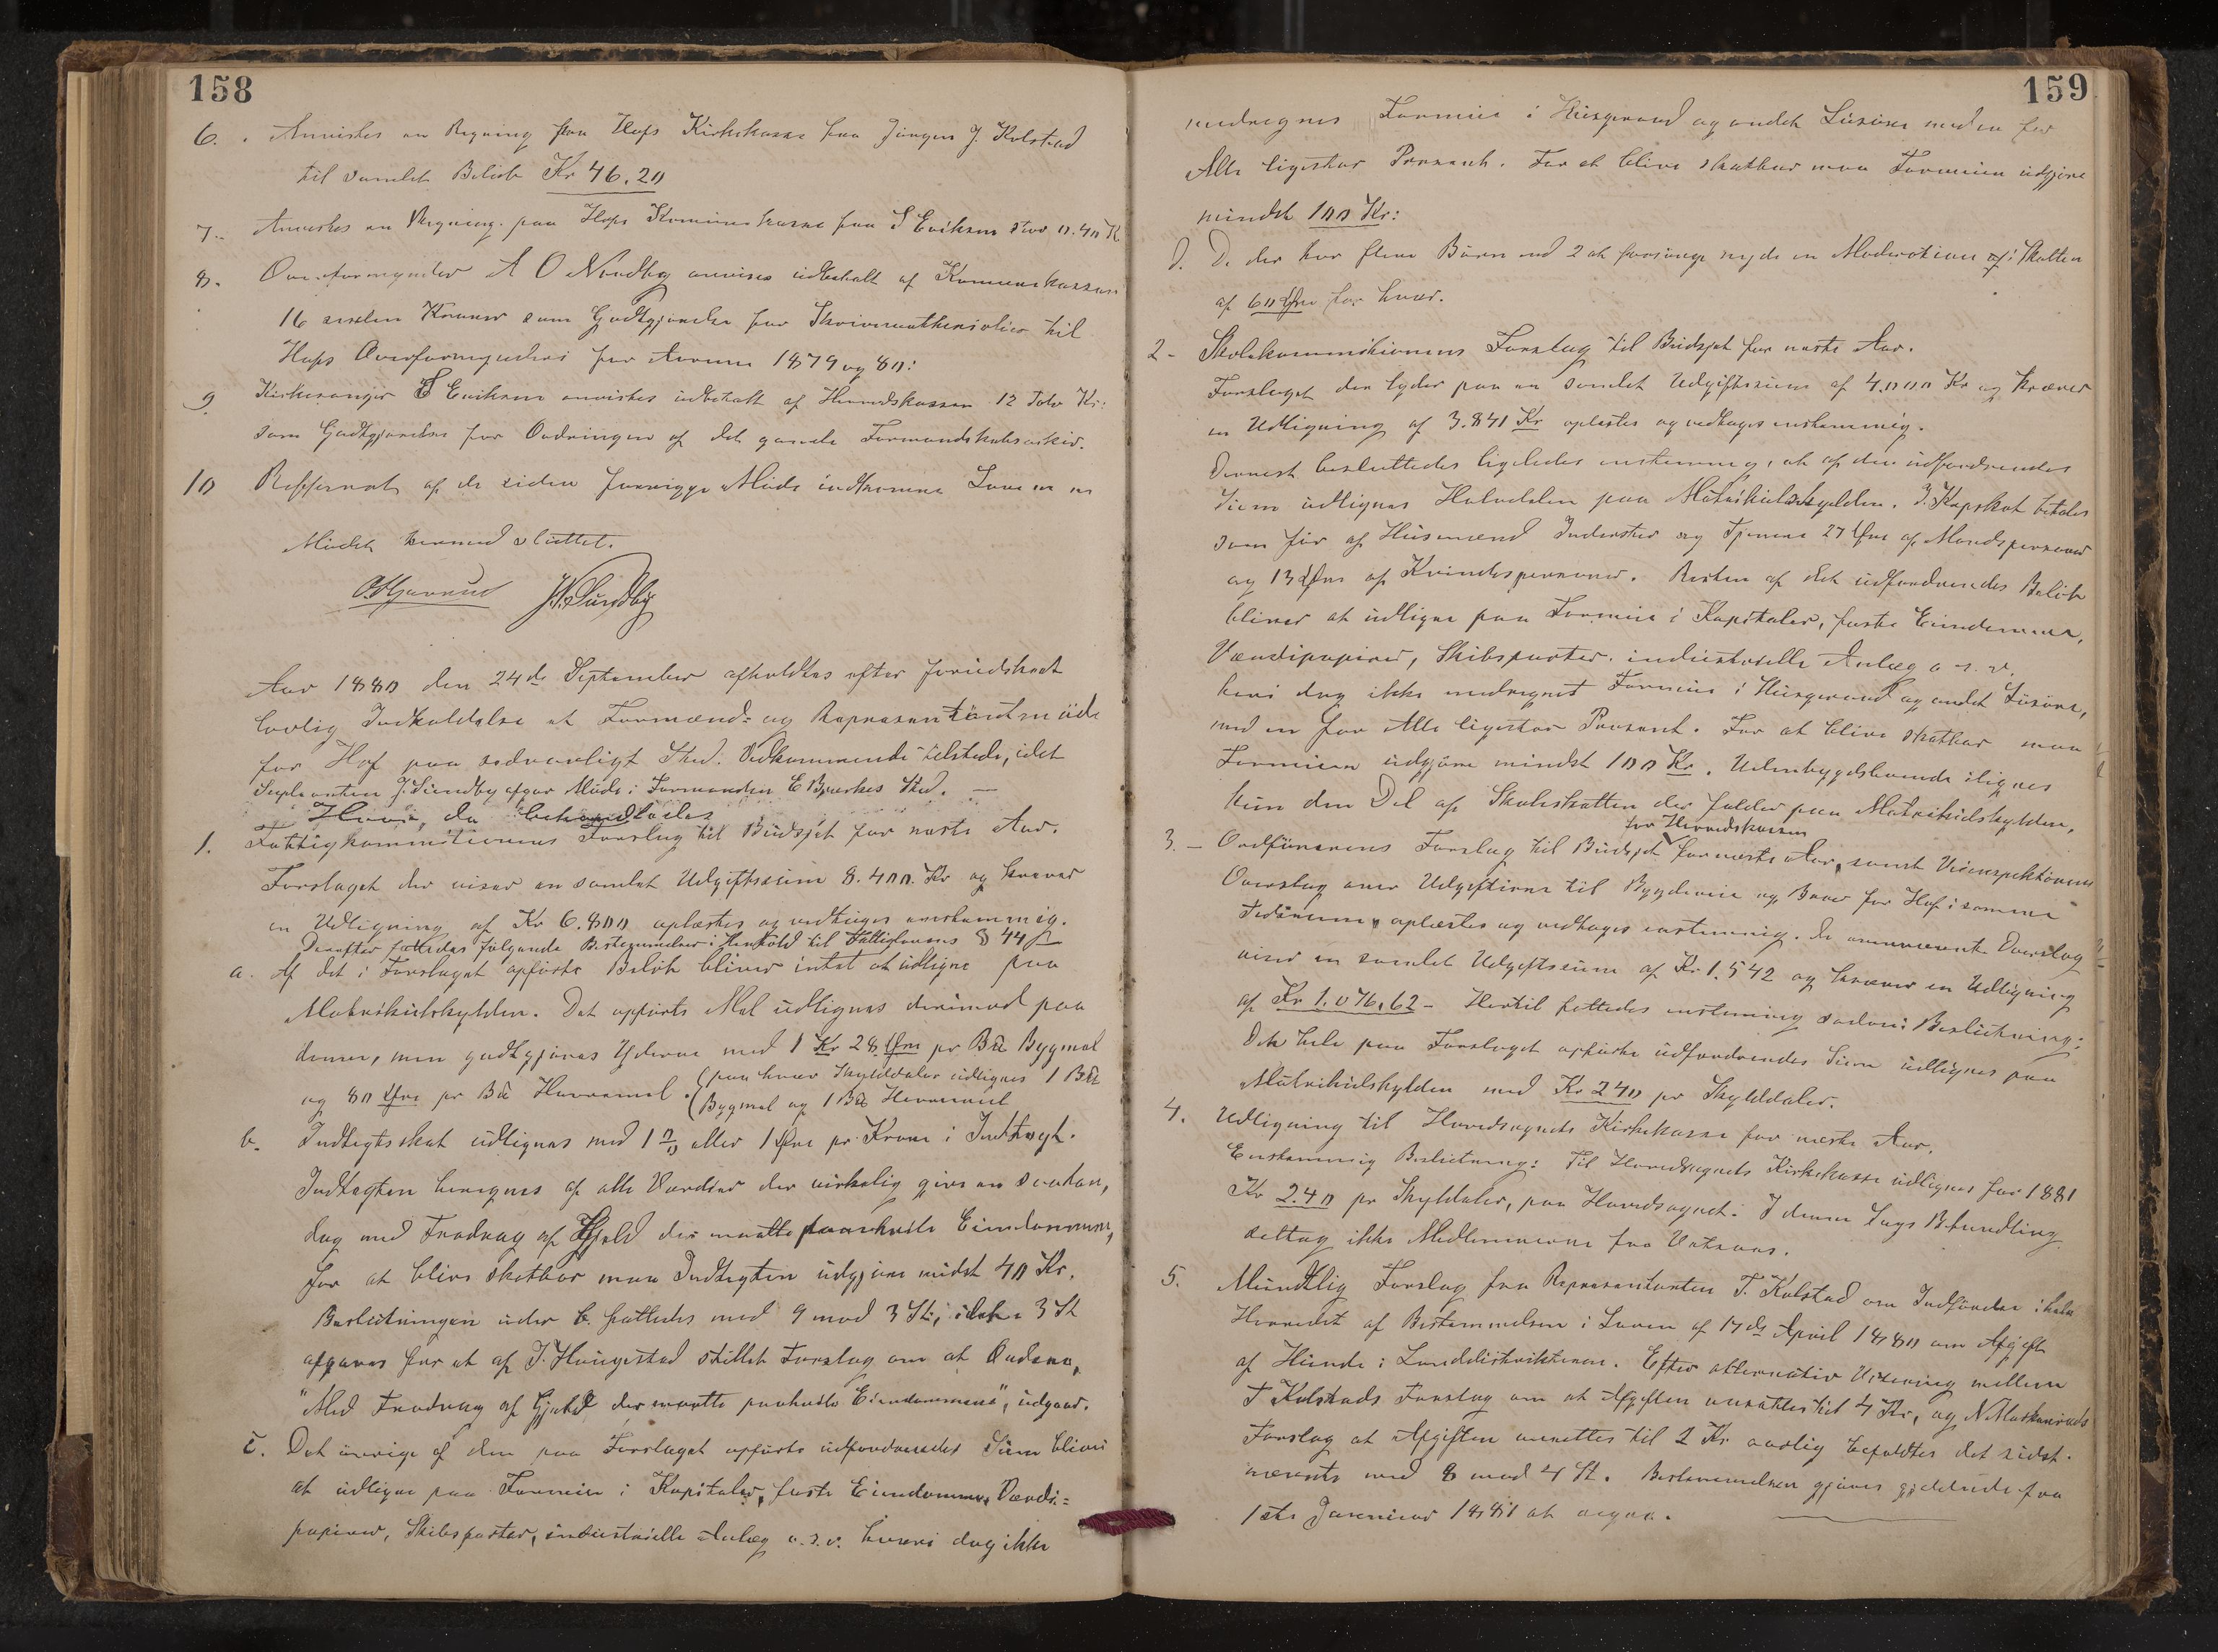 158
6. Anvistes en Regning paa Hofs Kirkekasse fra Jørgen J. Kolstad
til samlet Beløb Kr 46.20
7. Anvistes en Regning paa Hofs Kommunekasse fra S Eriksen stor 11.40 K
8. Overformynder A O Nordby anvises udbetalt af Kommunekassen
16 sexten Kroner som Godtgjørelse for Skrivematherialier til
Hofs Overformynderi for Aarene 1879 og 80:
9 Kirkesanger S Eriksen anvistes udbetalt af Herredskassen 12 Tolv Kr:
som Godtgjørelse for Ordningen af det gamle Formandskabsarkiv.
10 Refferat af de siden forrige Møde indkomne
Mødet hermed sluttet.
J. Sundby
Aar 1880 den 24de September afholdtes efter forudskeet
lovlig Indkaldelse et Formænd- og Repræsentantmøde
for Hof paa sedvanligt Sted. Vedkommende tilstede, idet
Supleanten J. Sundby afgav Møde i Formanden E Bjerkes Sted. —
Hvori, da behandledes
1. Fattigkommitionens Forslag til Budsjet for næste Aar.
Forslaget der viser en samlet Udgiftssum 8.400 Kr og krever
en Udligning af Kr 6.800 oplæstes og vedtages enstemmig.
Derefter fattedes følgende Bestemmelser i Henhold til Fattiglovens § 44
a. Af det i Forslaget opførte Beløb bliver intet at udligne paa
Matrikulskylden. Det opførte Mel udlignes derimod paa
denne, men godtgjøres Yderne med 1 Kr 28 Øre pr B℔ Bygmel
og 80 Øre pr B℔ Havremel. (paa hver Skylddaler udlignes 1 B℔
(Bygmel og 1 B℔ Havremel
b. Indtegtsskat udlignes med 1 % eller 1 Øre pr Krone i Indtægt.
Indtægten beregnes af alle Værdier der virkelig give en saadan,
dog med Fradrag af Gjeld der maatte paahvile Eiendommene,
for at blive skatbar maa Indtegten udgjøre mindst 40 Kr.
Beslutningen under b. fattedes med 9 mod 3 St; idet 3 St
afgaves for et af J. Haugestad stillet Forslag om at Ordene,
"Med Fradrag af Gjeld der maatte paahvile Eiendommene", udgaar.
c. Det øvrige af den paa Forslaget opførte udfordrendes Sum blive
at udligne paa Formue i Kapitaler, faste Eiendomme, Værdi=
papirer, Skibsparter, industrielle Anlæg o.s.v. hvori dog ikke
159
medregnes Formue i Husgeraad og andet Løsøre med en for
Alle ligestor Prosent. For at blive skatbar maa Formuen udgjøre
mindst 100 Kr:
d. De der har flere Børn end 2 at forsørge nyde en Moderation i Skatten
af 60 Øre for hver.
2- Skolekommitionens Forslag til Budsjet for næste Aar.
Forslaget der lyder paa en samlet Udgiftssum af 4.000 Kr og kræver
en Udligning af 3.841 Kr oplæstes og vedtages enstemmig.
Dernest besluttedes ligeledes enstemmig, at af den udfordrendes
Sum udlignes Halvdelen paa Matrikulskylden. I Kopskat betales
som før af Husmænd Inderster og Tjenere 27 Øre af Mandspersoner
og 13 Øre af Kvindespersoner. Resten af det udfordrendes Beløb
bliver at udligne paa Formue i Kapitaler, faste Eiendomme,
Værdipapirer, Skibsparter. industrielle Anlæg o. s. v.
hvori dog ikke medregnet Formue i Husgeraad og andet Løsøre,
med en for Alle ligestor Prosent. For at blive skatbar maa
Formuen udgjøre mindst 100 Kr. Udenbygdsboende ilignes
kun den Del af Skoleskatten der falder paa Matrikulskylden,
for Herredskassen
3. - Ordførerens Forslag til Budsjet for næste Aar, samt Veiinspektørens
Overslag over Udgifterne til Bygdeveie og Broer for Hof i samme
Tidsrum, oplæstes og vedtages enstemmig. De ovennævnte Overslag
viser en samlet Udgiftssum af Kr 1.542 og kræver en Udligning
af Kr 1.076.62 - Hertil fattedes enstemmig saadan Beslutning:
Det hele paa Forslaget opførte udfordrendes Sum udlignes paa
Matrikulskylden med Kr 2 40 pr Skylddaler.
4. Udligning til Hovedsognets Kirkekasse for næste Aar.
Enstemmig Beslutning: Til Hovedsognets Kirkekasse udlignes for 1881
Kr 2.40 pr Skylddaler, paa Hovedsognet. I denne Sags Behandling
deltog ikke Medlemmerne fra Vatsaas.
5. Mundtlig Forslag fra Representanten T. Kolstad om Indførelse i hele
Herredet af Bestemmelsen i Loven af 17de April 1880 om Afgift
af Hunde i Landdistrikterne. Efter alternativ Votering mellem
T Kolstads Forslag om at Afgiften ansættes til 4 Kr, og N
Forslag at Afgiften ansettes til 2 Kr aarlig befaldtes det sidst-
nævnte med 8 mod 4 St. Bestemmelsen gjøres gjeldende fra
1ste Januar 1881 at regne.